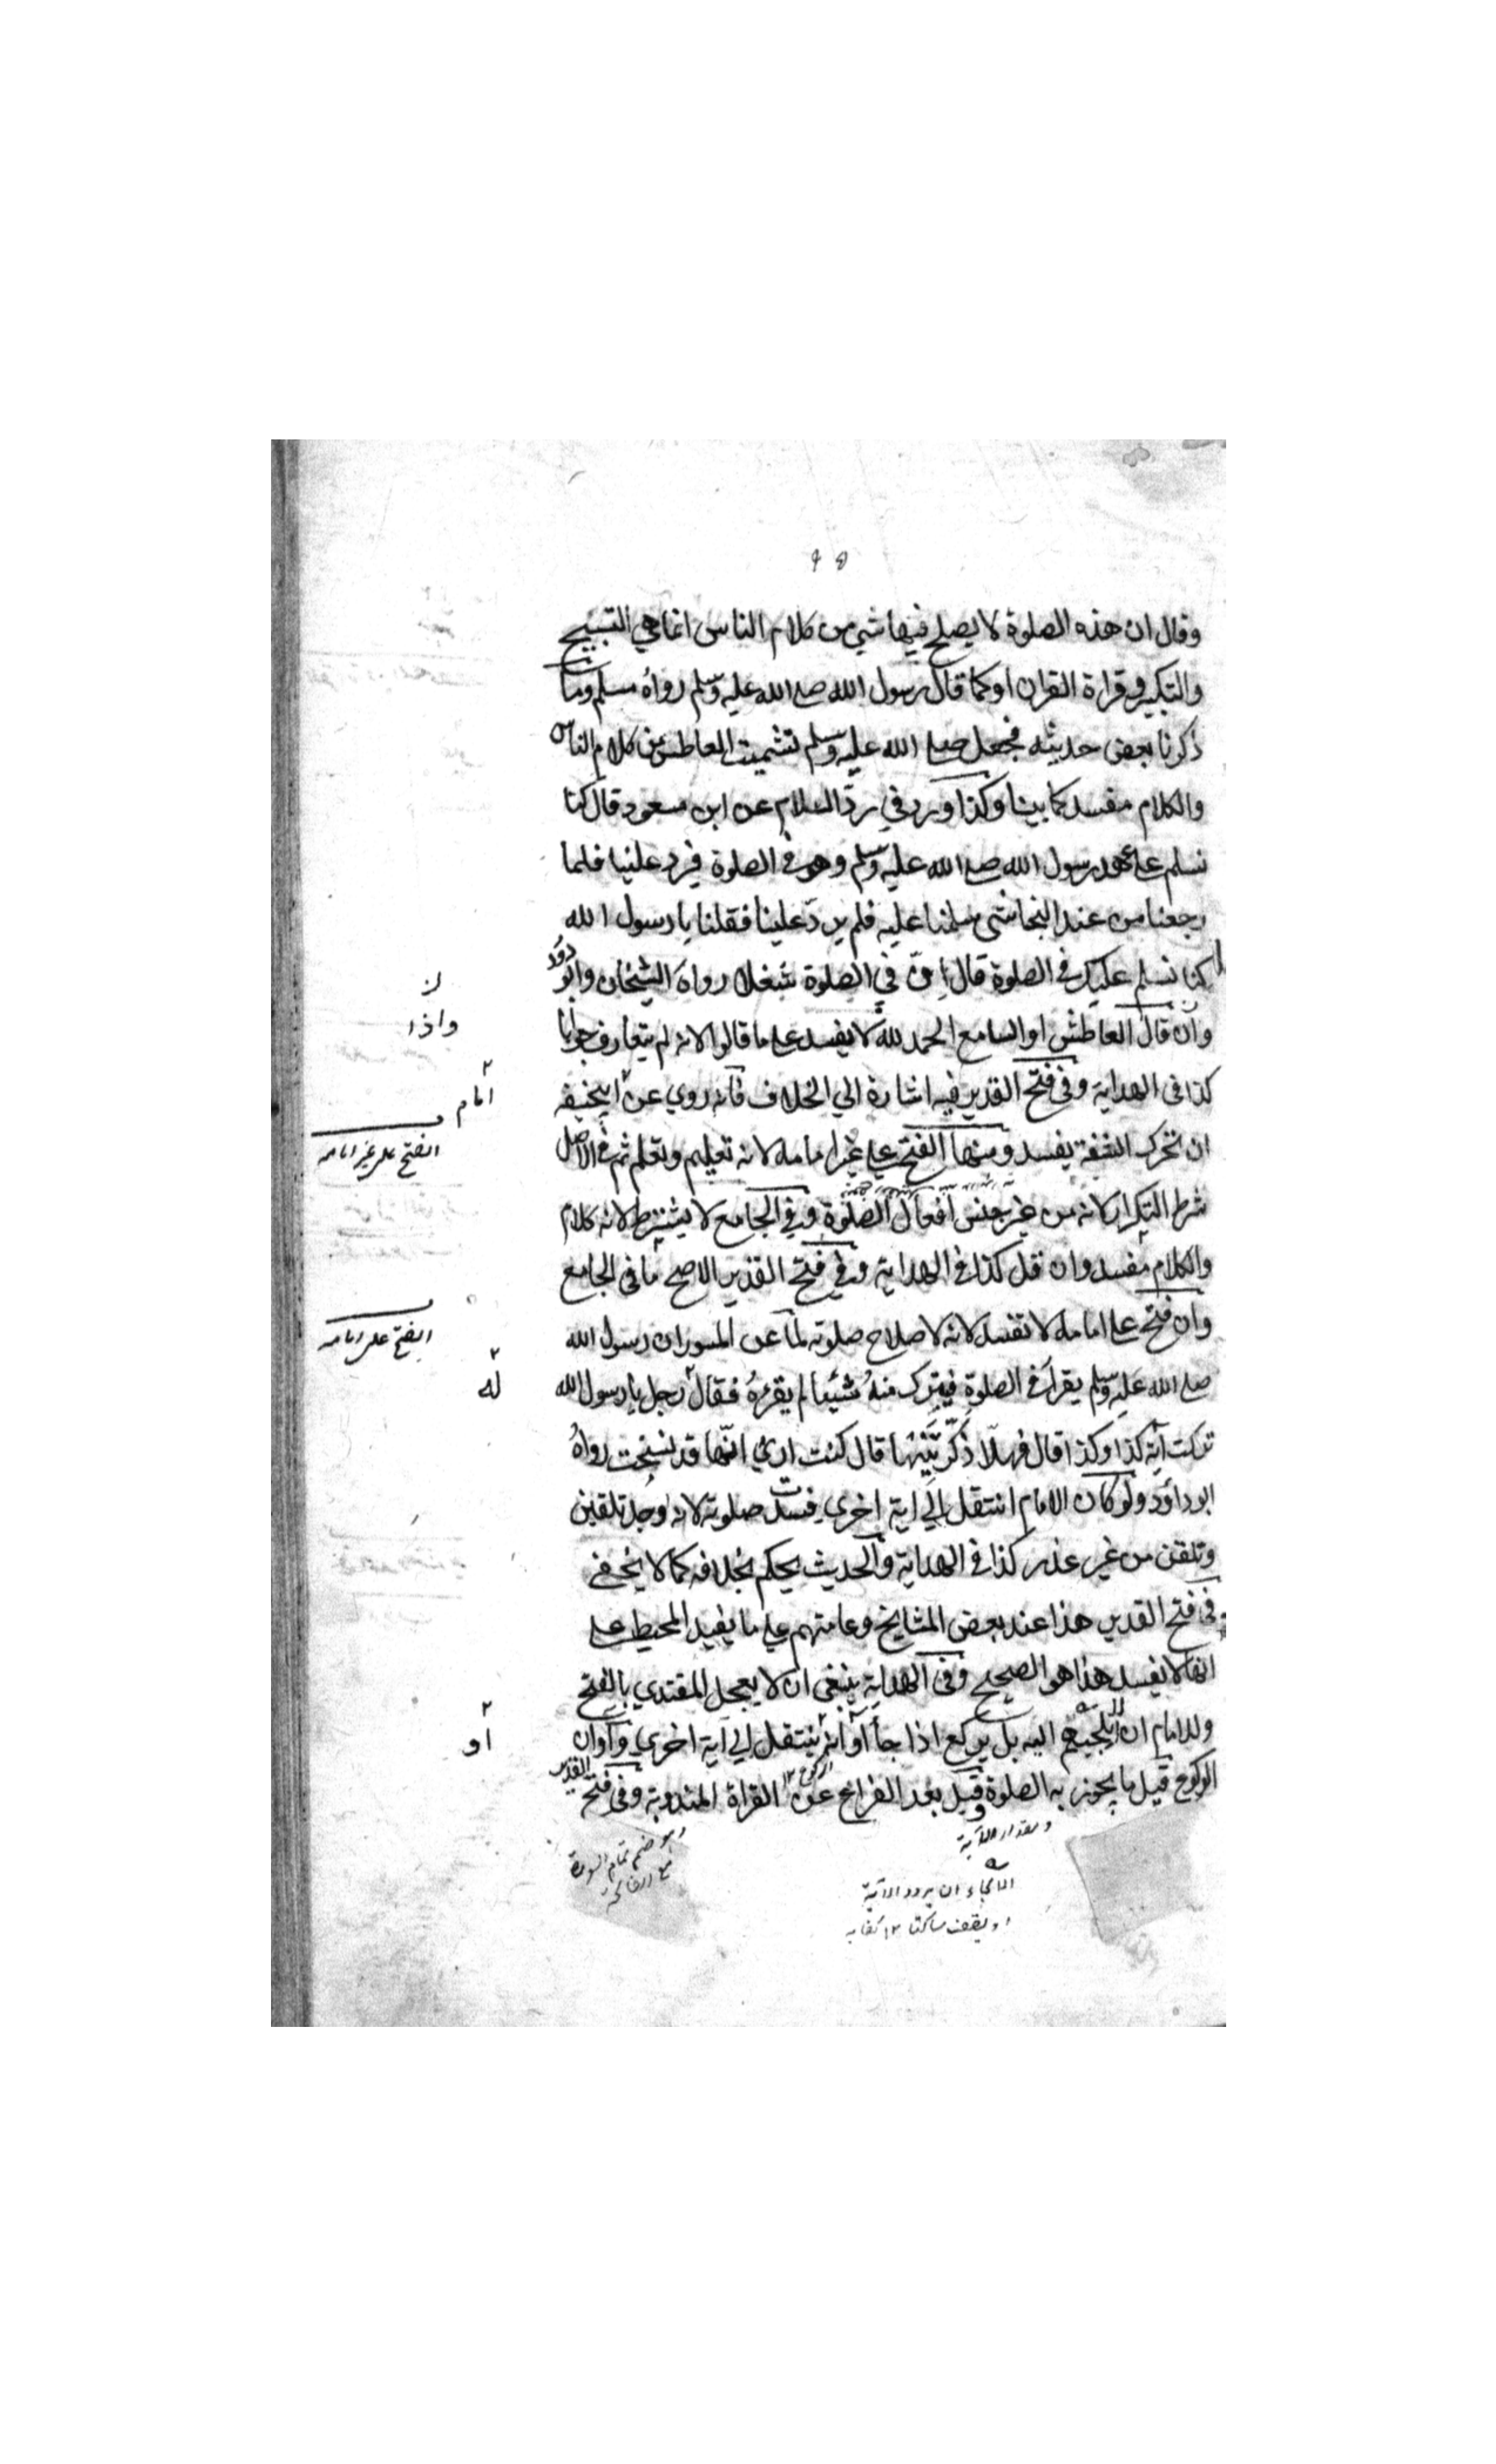 وقال ان هذه الصلوة لا يصلح فيها شي من كلام الناس انما هي التسبيح
والتكبير وقراة القران او كما قال رسول الله صلى الله عليه وسلم رواه مسلم وما
ذكرنا بعض حديثه فجعل صلى الله عليه وسلم تشميت العاطس من كلام الناس
والكلام مفسد كما بينا وكذا ورد في ردّ السلام عن ابن مسعود قال كنا
نسلم على عهد رسول الله صلى الله عليه وسلم وهو في الصلوة فيرد علينا فلما
رجعنا من عند النجاشي سلمنا عليه فلم يردّ علينا فقلنا يا رسول الله
كنا نسلم عليك في الصلوة قال اِنّ في الصلوة شغلا رواه الشيخان وابو دؤد
وان قال العاطش او السامع الحمد لله لا يفسد على ما قالوا لانه لم يتعارف جوابا
كذا في الهداية وفي فتح القدير فيه اشارة الي الخلاف فانه روي عن ابيحنيفه
ان تحرك الشفة يفسد ومنها الفتح علي غير امامه لانه تعليم وتعلم ثم في الاصل
شرط التكرار لانه من غير جنس افعال الصلوة وفي الجامع لا يشترط لانه كلام
والكلام مفسد وان قل كذا في الهداية وفي فتح القدير الاصح ما في الجامع
وان فتح على امامه لا تفسد لانه لاصلاح صلوته لما عن المسور ان رسول الله
صلى الله عليه وسلم يقرأ في الصلوةِ فيترك منهُ شيئا لم يقرءهُ فقال رجل يا رسول الله
تركت آية كذا وكذا قال فهلّا ذكّرتَنيها قال كنت اري انّها قد نسخت رواهُ
ابو داؤد ولو كان الامام انتقل الي اية اخري فسدت صلوته لانه وجد تلقين
وتلقن من غير عذر كذا في الهداية والحديث يحكم بخلافه كما لا يخفى
في فتح القدير هذا عند بعض المشايخ وعامتهم علي ما يفيد المحيط على
انها لا يفسد هذا هو الصحيح وفي الهداية ينبغي ان لا يعجل المقتدي بالفتح
وللامام ان لا يلجيهم اليه بل يركع اذا جاأ اوانه ينتقل الي آية اخري واوان
الركوع قيل ما يجوز به الصلوة وقيل بعد الفراغ عن القراة المندوبة وفي فتح القدير
واذا
امام
الفتح على غير امامه
الفتح على امامه
له
او
ومقدار الآية
الالجاء ان يردد الآية
او يقف ساكتا ١٢ كفايه
وهو ضم تمام السورة
مع الفاتحة